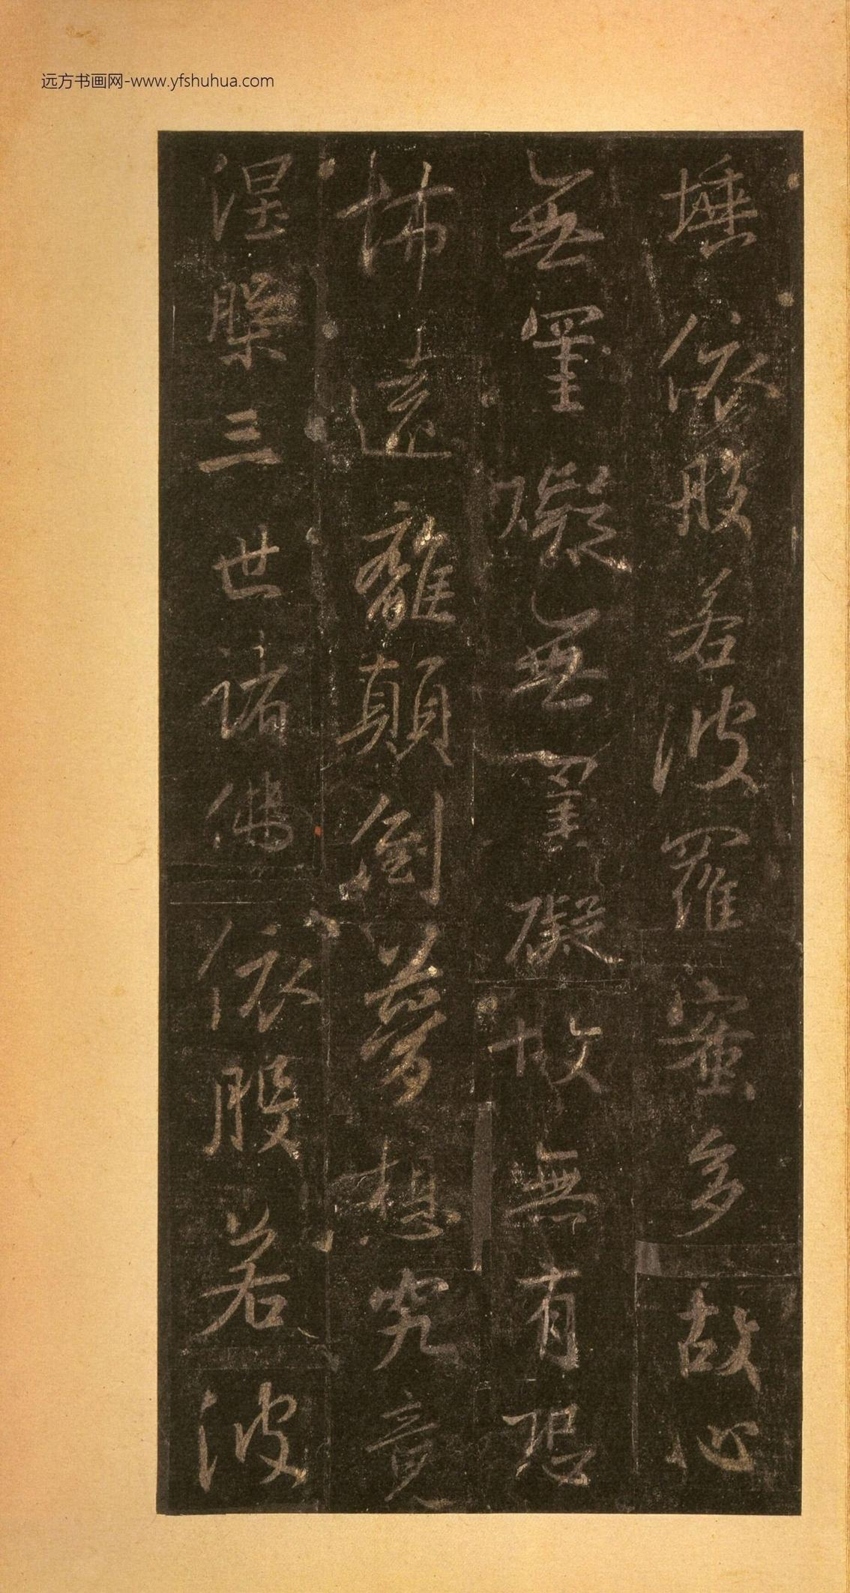 远方书画网-www.yfshuhua.com
埵依般若波羅蜜多故心
無罣礙無罣礙故無有恐
怖遠離顛倒夢想究竟
涅槃三世諸佛依般若波